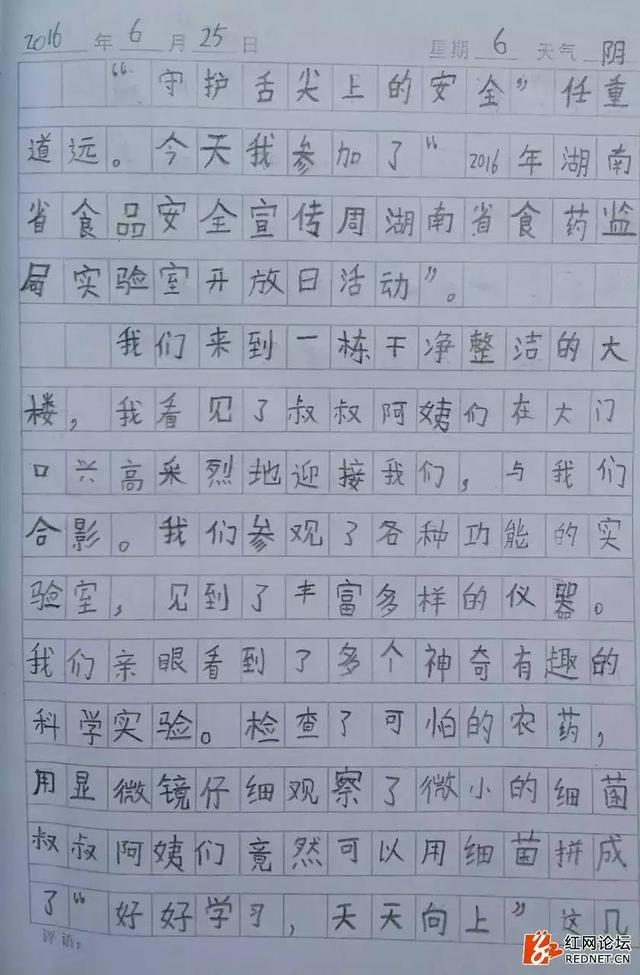 2016 年 6 月 25 日 星期 6 天气 阴
“守护舌尖上的安全”任重
道远。今天我参加了“2016年湖南
省食品安全宣传周湖南省食药监
局实验室开放日活动”。
我们来到一栋干净整洁的大
楼，我看见了叔叔阿姨们在大门
口兴高采烈地迎接我们，与我们
合影。我们参观了各种功能的实
验室，见到了丰富多样的仪器。
我们亲眼看到了多个神奇有趣的
科学实验。检查了可怕的农药，
用显微镜仔细观察了微小的细菌
叔叔阿姨们竟然可以用细菌拼成
了“好好学习，天天向上”这几
评语：
红网论坛
REDNET.CN